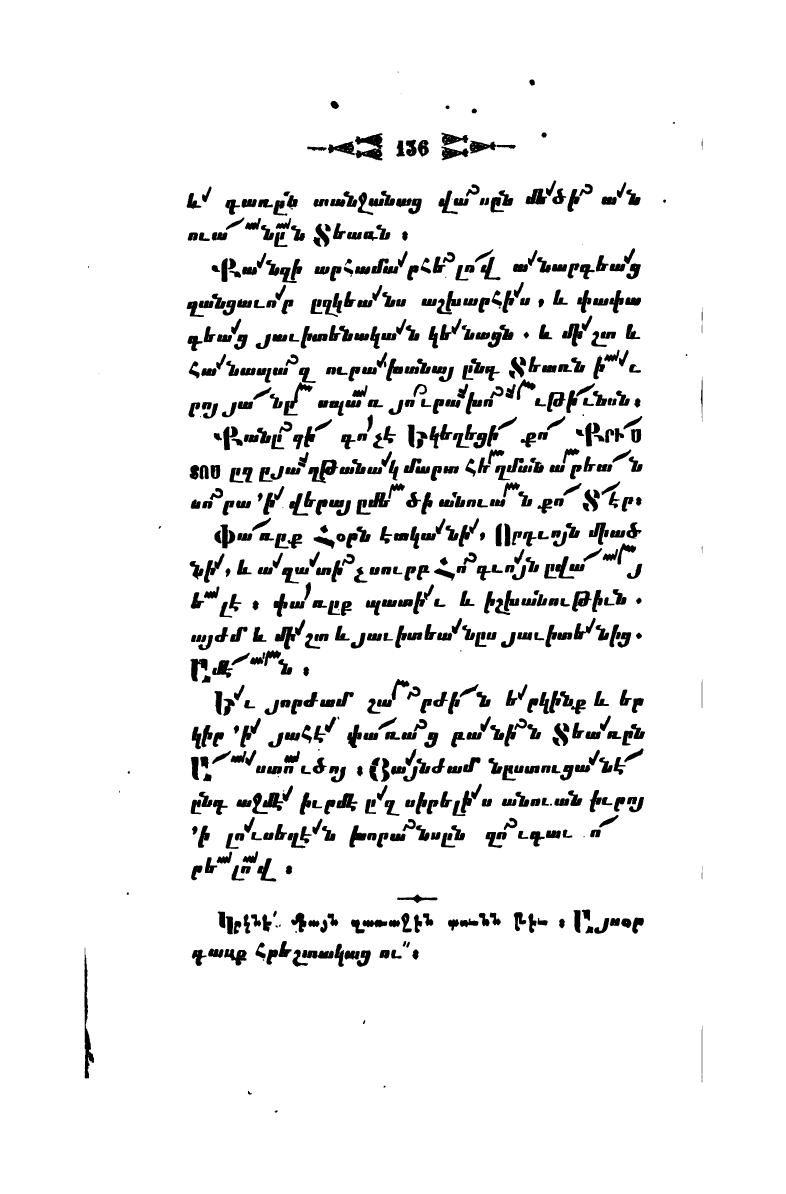 136
և գառըն տանջանաց վասըն մեծի ան
ուանըն Տեառն ։
Քանզի արհամարհելով անարգեաց
զանցաւոր ըզկեանս աշխարհիս, և փափա
գեաց յաւիտենական կենացն . և միշտ և
հանապազ ուրախանայ ընդ Տեառն իւ
րոյ յանըսպառ յուրախութիւնսն։
Քանըզի գոչէ Եկեղեցի քո ՔՐԻՍ
ՏՈՍ ըզ ըյաղթանակ մարտ հեղման արեան
սորա ՚ի վերայ ըմեծի անուան քո Տէր։
Փառըք Հօրն էտկանի, Որդւոյն միած
նի, և ազատիչ սուրբ Հոգւոյն ըվայ
ելէ ։ փառըք պատիւ և իշխանութիւն .
այժմ և միշտ և յաւիտեանըս յաւիտենից .
Ամէն ։
Եւ յորժամ շարժին երկինք և եր
կիր ՚ի յահէ փառաց բանին Տեառըն
Աստուծոյ ։ Յայնժամ նըստուցանէ
ընդ աջմէ իւրմէ ըզ սիրելիս անուան իւրոյ
՚ի լուսեղէն խորանսըն զուգաւո
րելով ։
Կրկնէ՛ միայն զառաջին տունն
Այսօր
դասք Հրեշտակաց ու՛՛։